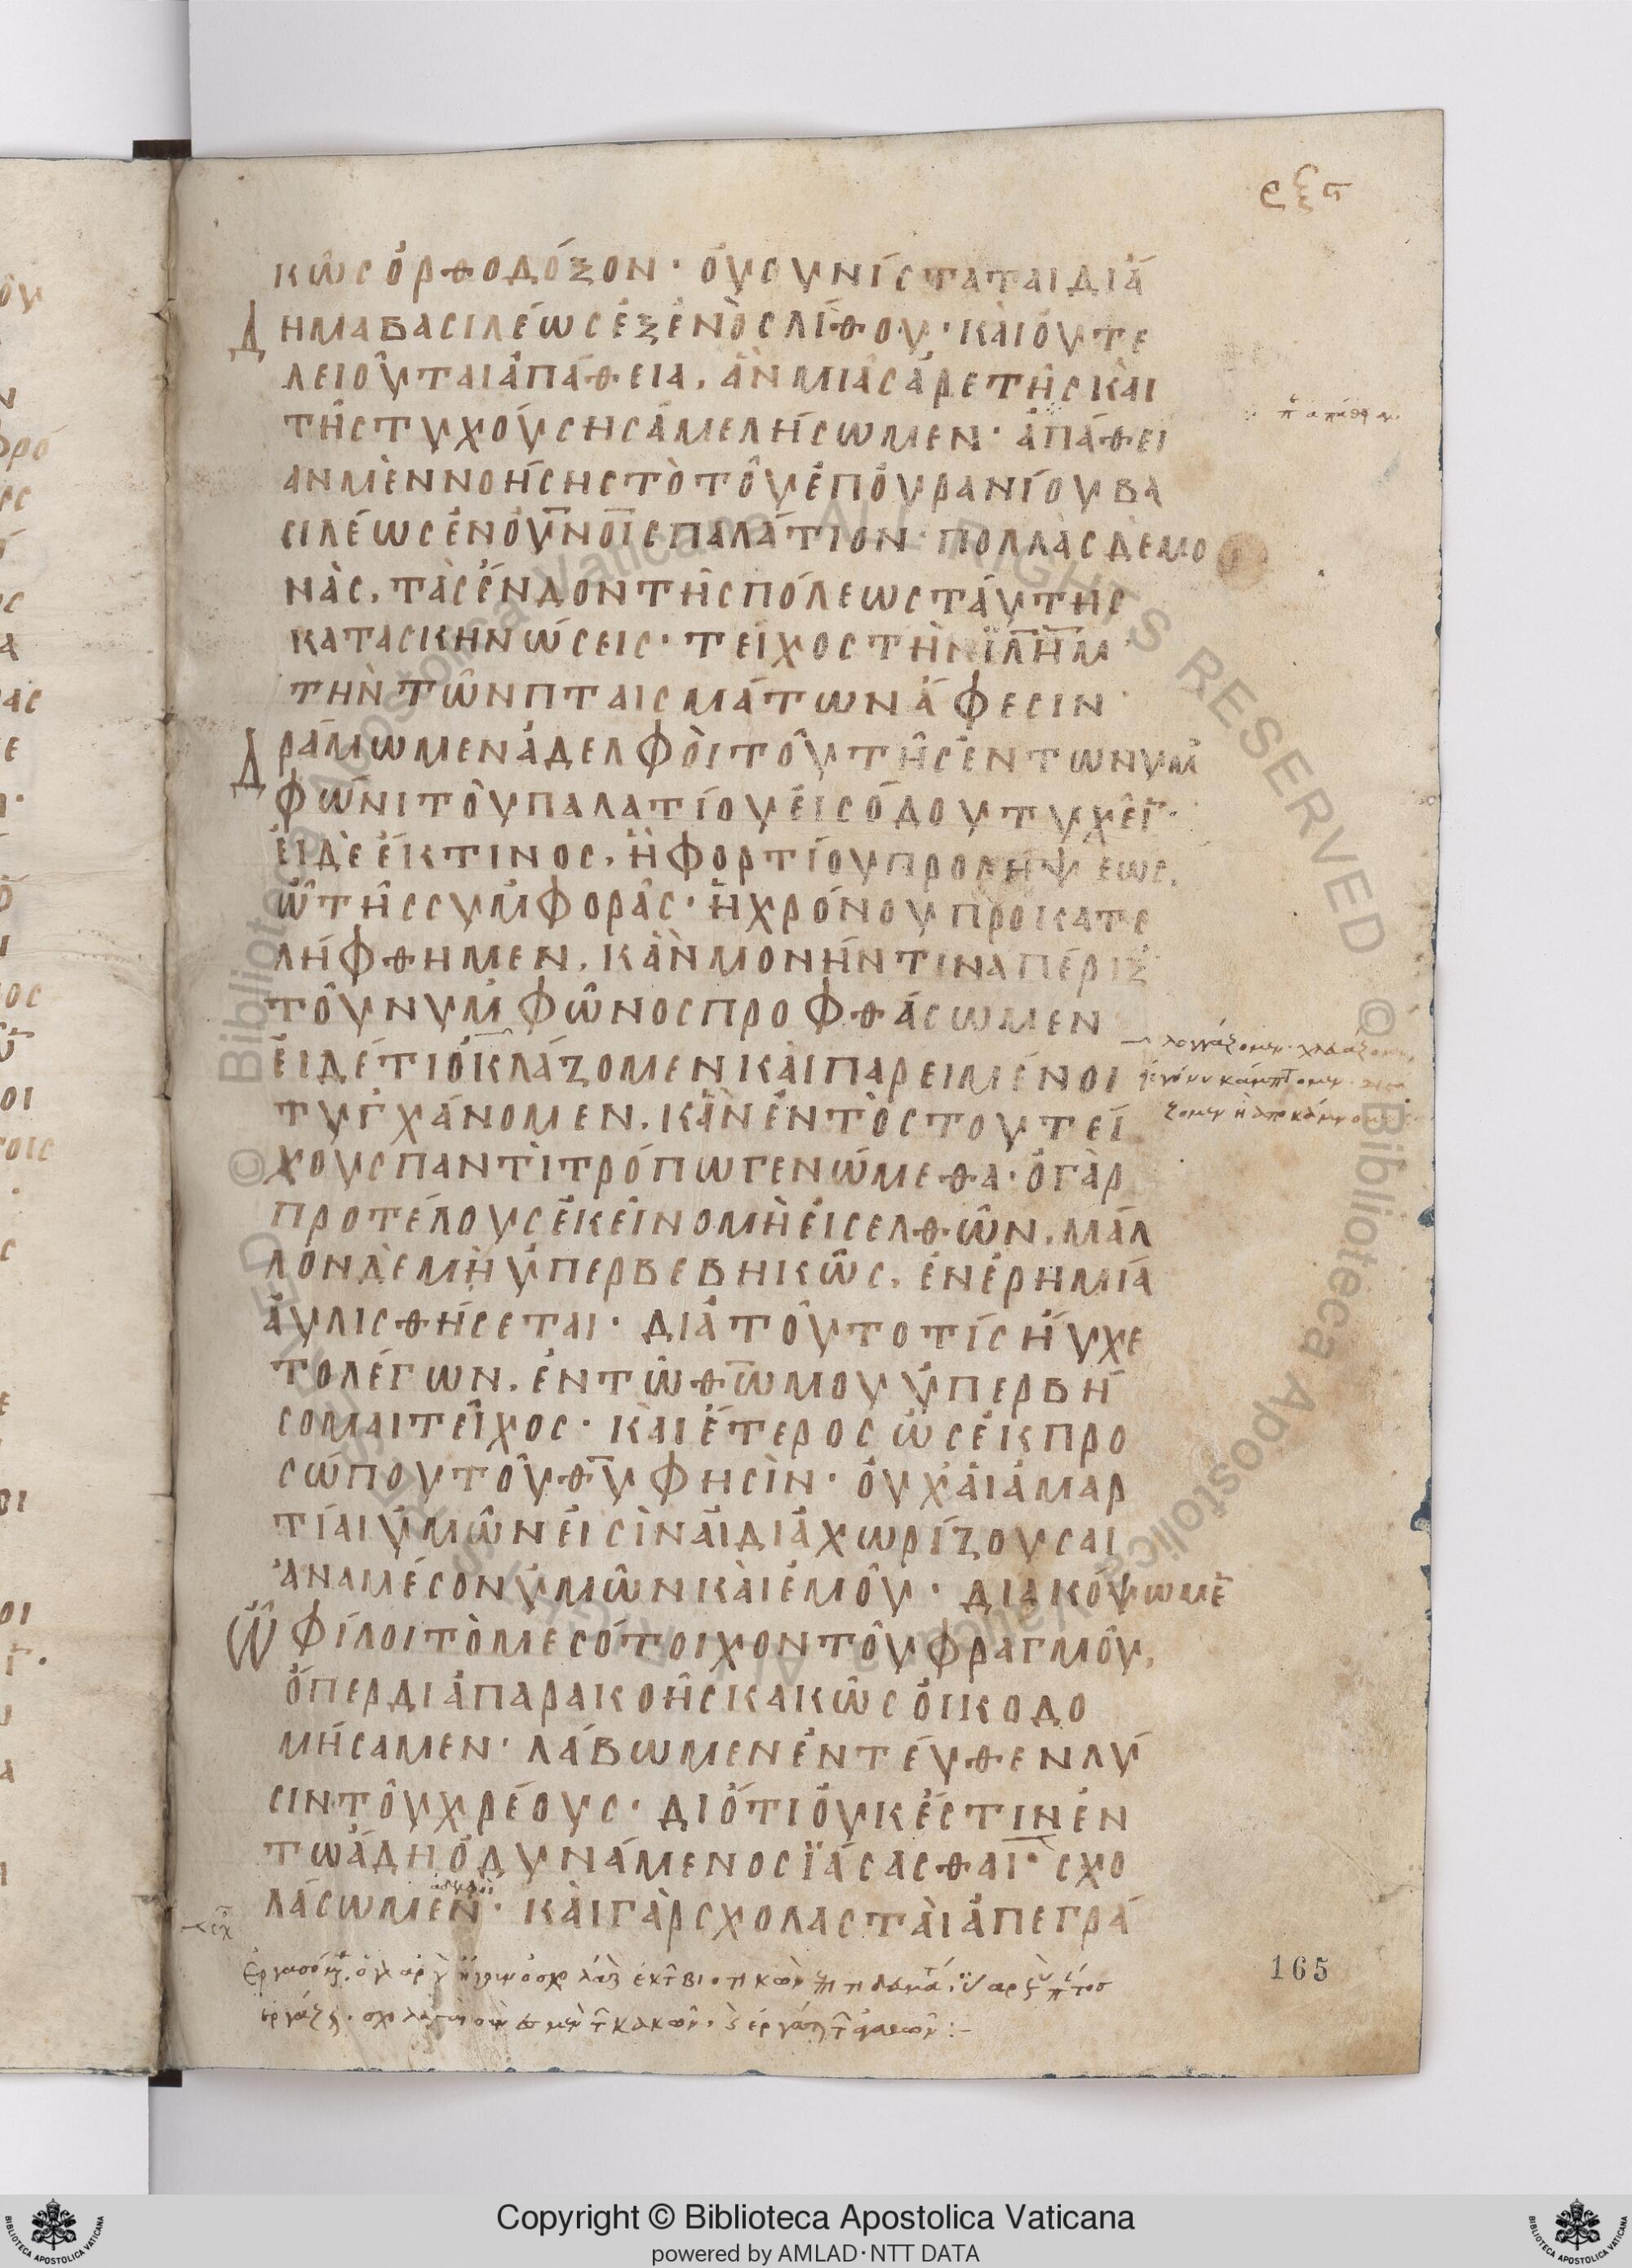 ρξε
κῶς ὀρθοδόξον· οὐ συνίσταται διά
δημα βασιλέως ἐξ ἑνὸς λίθου· καὶ οὐ τε
λειοῦται ἀπάθεια, ἂν μιᾶς ἀρετῆς καὶ
τῆς τυχούσης ἀμελήσωμεν· ἀπάθει
αν μὲν νοήσης τὸ τοῦ ἐπουρανίου βα
σιλέως ἐν οὐνοῖς παλάτιον· πολλὰς δὲ μο
νὰς, τὰς ἔνδον τῆς πόλεως ταύτης
κατασκηνώσεις· τεῖχος τὴν ϊλημ
τὴν τῶν πταισμάτων ἄφεσιν·
Δράμωμεν ἀδελφοὶ τοῦ τῆς ἐν τω νυμ
φῶνι τοῦ παλατίου εἰσόδου τυχεῖν·
εἰ δὲ ἔκ τινος, ἢ φορτίου προλήψεως,
ὢ τῆς συμφορᾶς· ἢ χρόνου προκατε
λήφθημεν, κἂν μονήν τινα πέριξ
τοῦ νυμφῶνος προφθάσωμεν
εἰ δ' ἔτι ὀκλάζομεν καὶ παρειμένοι
τυγχάνομεν, κἂν ἐντὸς του τεί
χους παντὶ τρόπω γενώμεθα· ὁ γὰρ
προ τέλους ἐκεῖνο μὴ εἰσελθῶν, μᾶλ
λον δὲ μὴ ὑπερβεβηκῶς, ἐν ἐρημία
αὐλισθήσεται· διὰ τοῦτο τίς ηὔχε
το λέγων, ἐν τῶ θω μου ὑπερβή
σομαι τεῖχος· καὶ ἕτερος ὡς ἐκ προ
σώπου τοῦ θυ φησὶν· οὐχ αἱ ἁμαρ
τίαι ὑμῶν εἰσὶν αἱ διαχωρίζουσαι
ἀναμέσον ὑμῶν καὶ ἐμοῦ· διακόψωμε
ὦ φίλοι τὸ μεσότοιχον τοῦ φραγμοῦ,
ὅπερ διὰ παρακοῆς κακῶς ὀικοδο
μήσαμεν· λάβωμεν ἐντέυθεν λύ
σιν τοῦ χρέους· διότι οὐκ ἔστιν ἐν
τω ἄδη ὁ δυνάμενος ϊάσασθαι· σχο
λάσωμεν ἀδελφοὶ· καὶ γὰρ σχολασταὶ ἀπεγρά
165